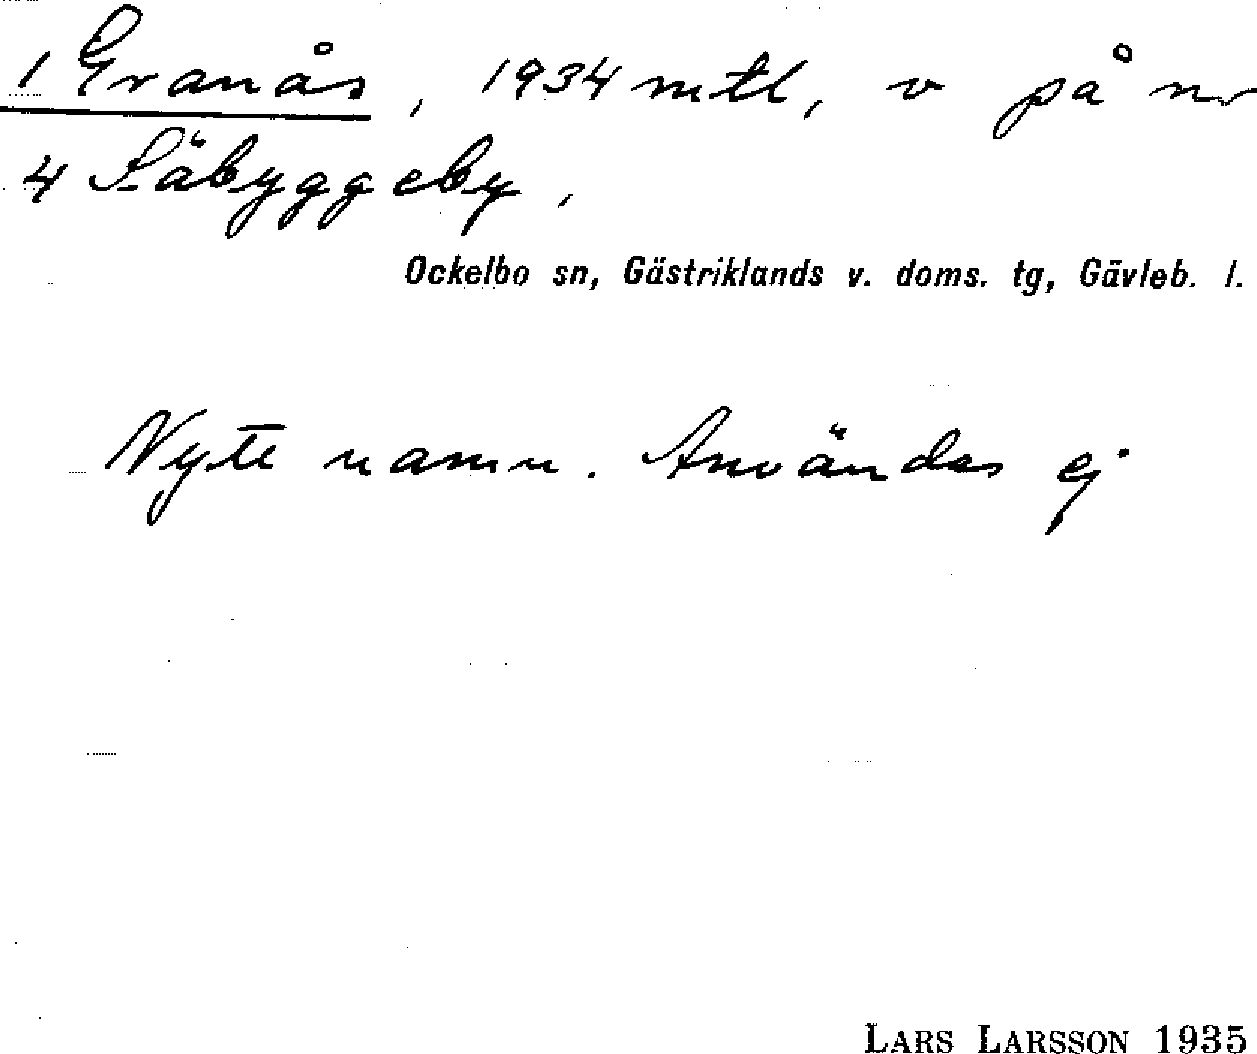 1 Granås, 1934 mtl, v på nr
4 Säbyggeby.
Ockelbo sn, Gästriklands v. doms. tg, Gävleb. l.
Nytt namn. Användes ej
LARS LARSSON 1935